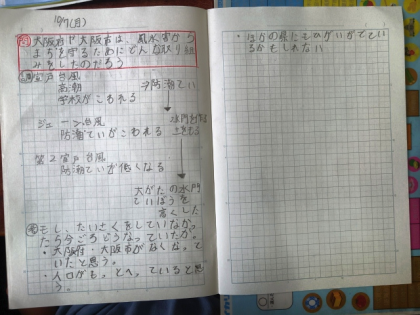 10/7(月)
大阪府や大阪市は、風水害から
まちを守るためにどんな取り組
みをしたのだろう
室戸台風
高潮
防潮てい
学校がこわれる
ジェーン台風
水門を作る
防潮ていがこわれる
第2室戸台風
防潮ていが低くなる
大がたの水門
ていぼうを
高くした
もし、たいさくをしていなかっ
たら今ごろどうなっていたか。
・大阪府・大阪市がなくなって
いたと思う。
・人口がもっとへっていると思
う。
・ほかの県にもひがいがでてい
るかもしれない